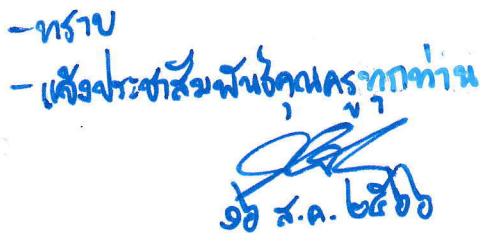 -ทราบ
- แจ้งประชาสัมพันธ์คุณครูทุกท่าน
๑๖ ส.ค. ๒๕๖๖